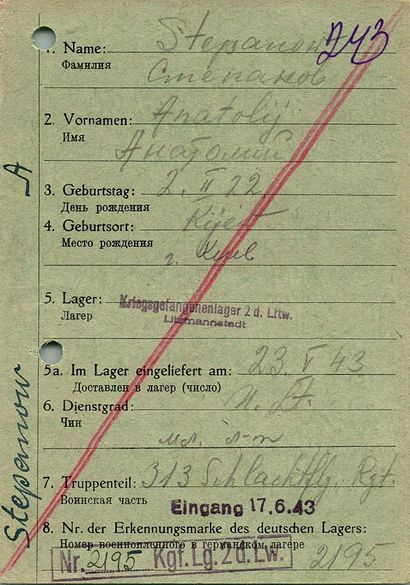 243
1. Name: Stepanow
Фамилия
Степанов
2. Vornamen: Anatolij
Имя
Анатолий
3. Geburtstag: 2. II 22
День рождения
4. Geburtsort: Kijew
Место рождения
г. Киев
5. Lager: Kriegsgefangenenlager 2 d. Lftw.
Лагер
Litzmannstadt
5a. Im Lager eingeliefert am: 23. V 43
Доставлен в лагер (число)
6. Dienstgrad:
Чин
мл. л-т
7. Truppenteil: 313 Schlachtflg. Rgt.
Воинская часть
Eingang 17.6.43
8. Nr. der Erkennungsmarke des deutschen Lagers:
Номер военнопленного в германском лагере
Nr. 2195 Kgf.Lg.2d.Lw. 2195
Stepanow A